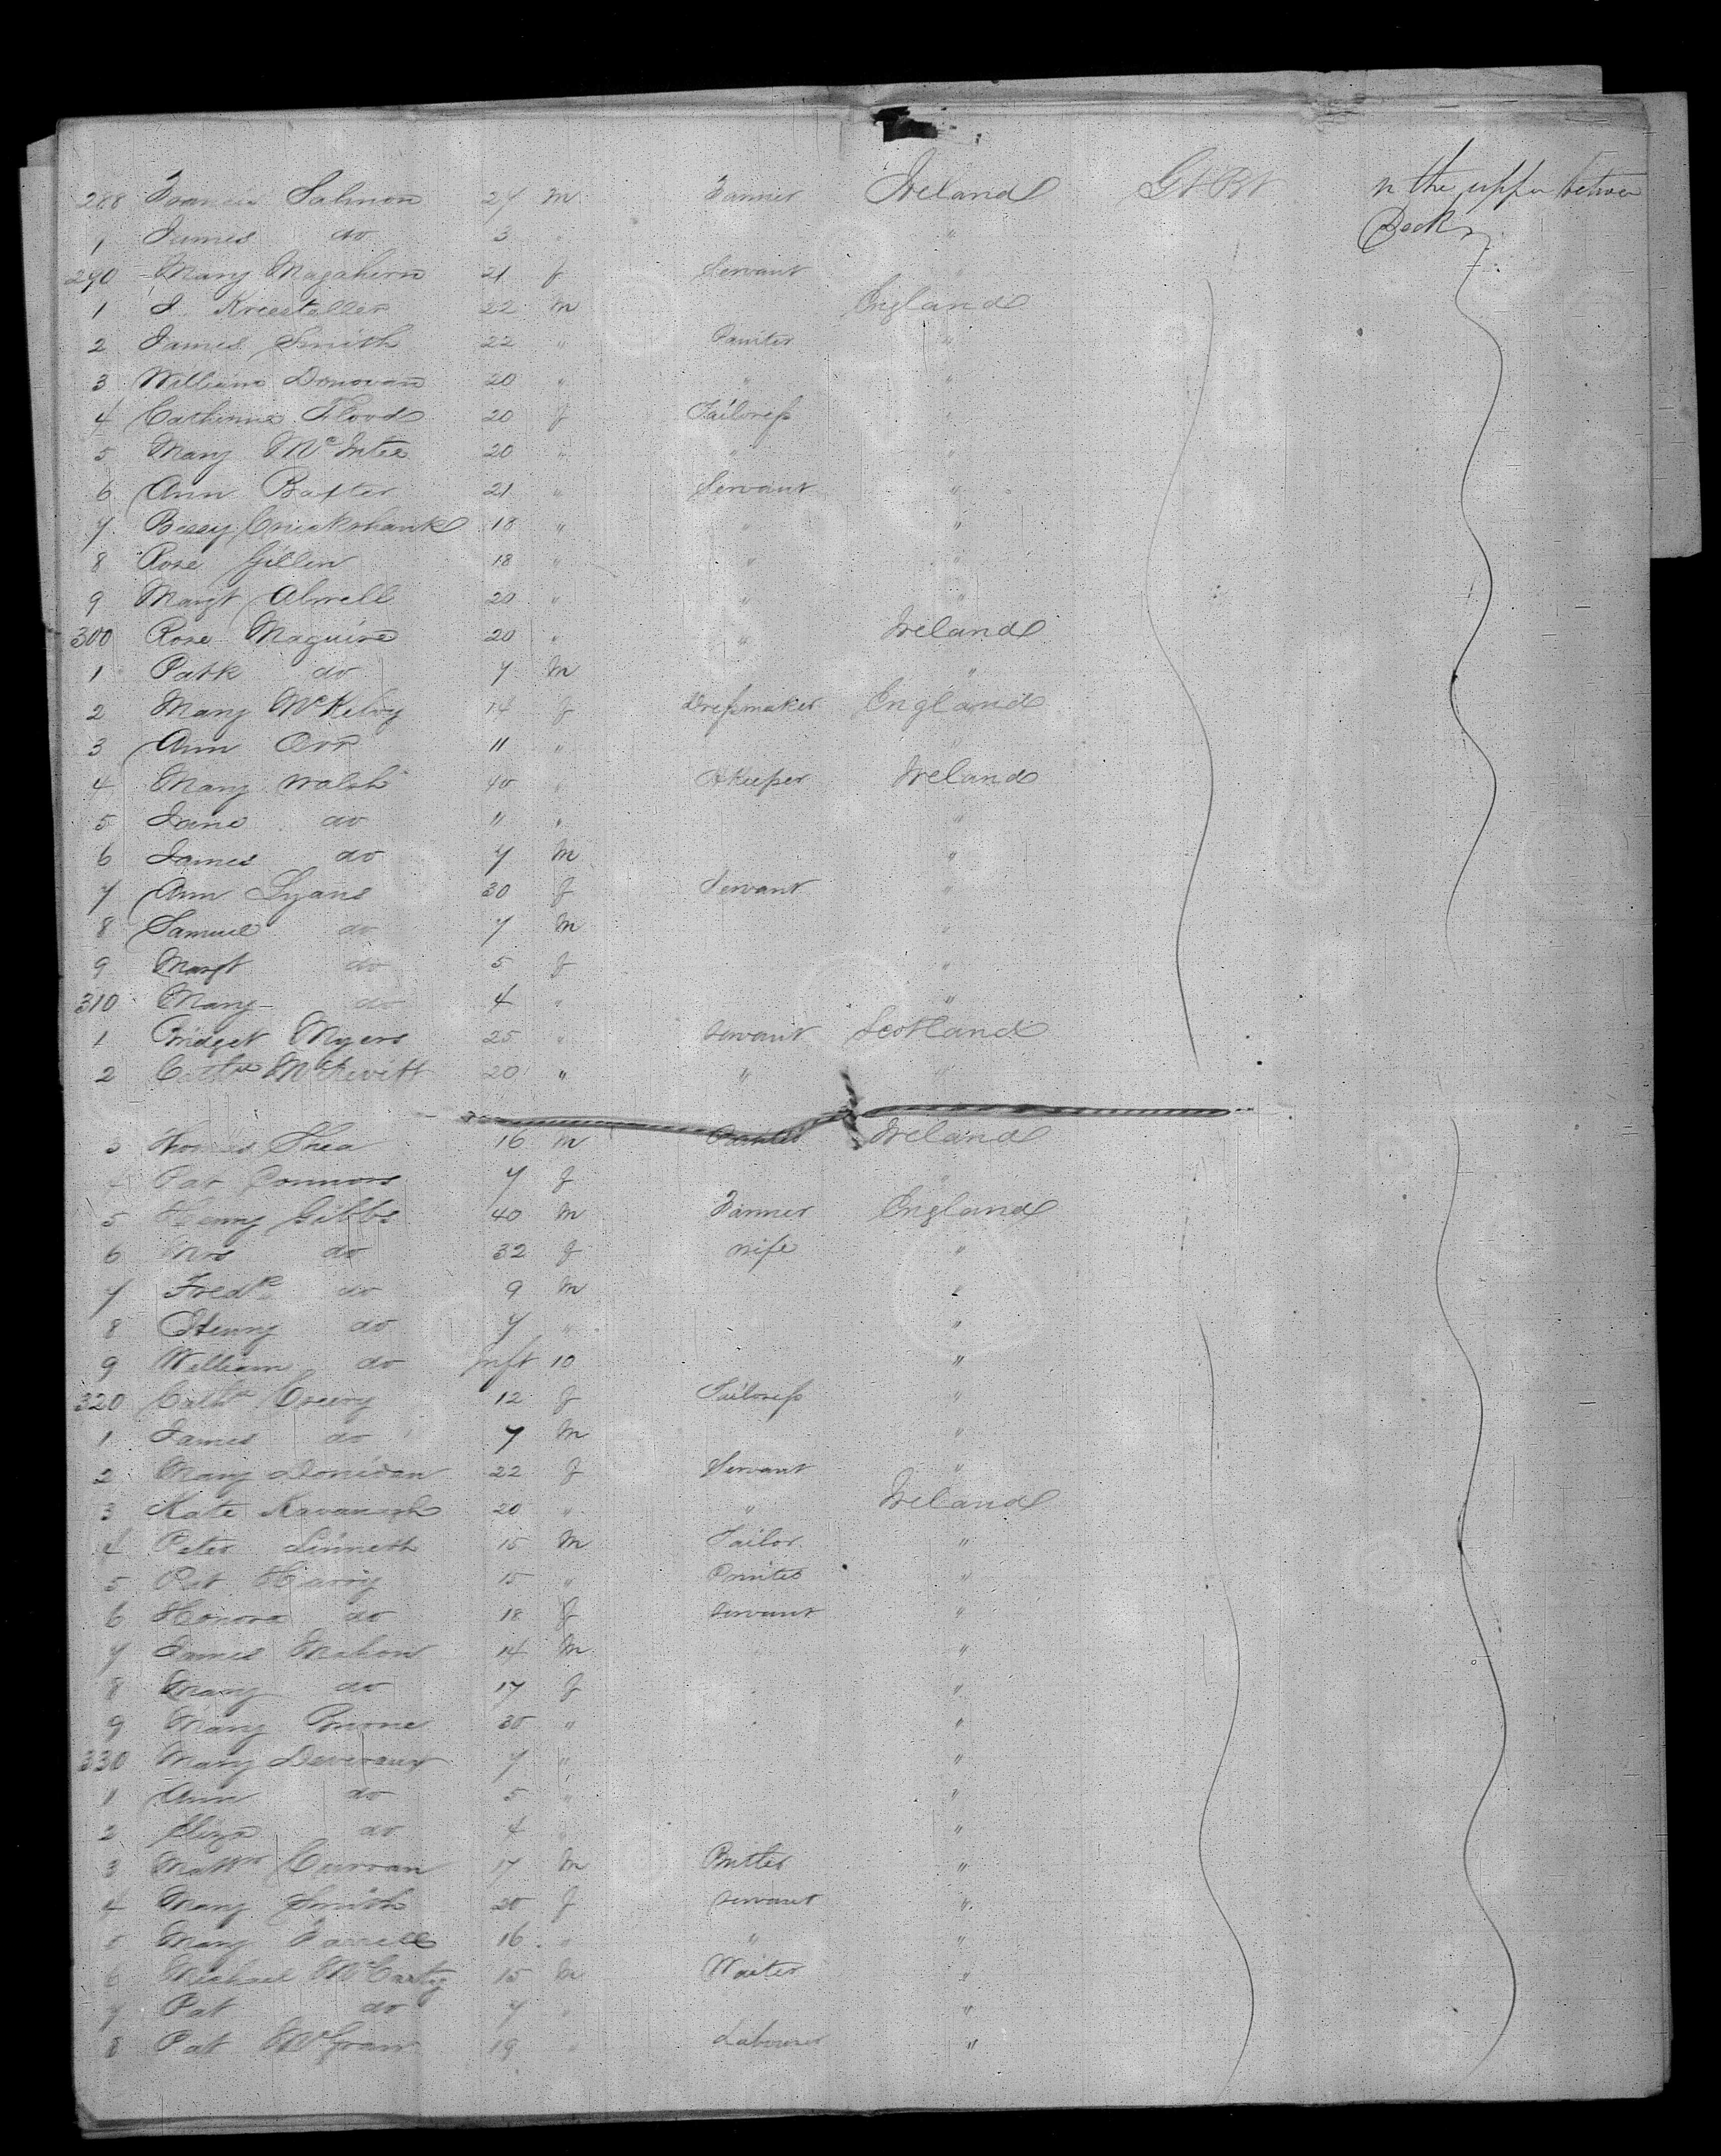 288 Francis Salmon 27 M Farmer Ireland Gt Bt n the upper between
1 James do 3 " " Decks
290 Mary Magahern 21 f Servant "
1 J. 22 M England
2 James Smith 22 " Painter "
3 William Donovan 20 " " "
4 Catherine Flood 20 f Tailoress "
5 Mary McEntee 20 " " "
6 Ann Baxter 21 " Servant "
7 Bessy Cruickshank 18 " " "
8 Rose Gillen 18 " " "
9 Margt 20 " " "
300 Rose Maguire 20 " " Ireland
1 Patk do 7 M "
2 Mary McKelvy 14 f Dressmaker England
3 Ann Orr 11 " "
4 Mary Walsh 40 " Hkeeper Ireland
5 Jane do 11 " "
6 James do 7 M "
7 Ann Lyans 30 f Servant "
8 Samuel do 7 M "
9 Margt do 5 f "
310 Mary do 4 " "
1 Bridget Myers 25 " Servant Scotland
2 Cathne McKevitt 20 " " "
3 Thomas Shea 16 M Ireland
4 Pat Connors 7 f
5 Henry Gibbs 40 M Farmer England
6 Mrs do 32 f Wife "
7 Fredk do 9 M "
8 Henry do 7 " "
9 William do Inft 10 "
320 Cathne Creevy 12 f Tailoress "
1 James do 7 M "
2 Mary Donidan 22 f Servant "
3 Kate Kavanagh 20 " " Ireland
4 Peter Linneth 15 M Tailor "
5 Pat Harry 15 " Printer "
6 Honora do 18 f Servant "
7 James Mahon 14 M "
8 Mary do 17 f "
9 Mary 30 " "
330 Mary Devereaux 7 " "
1 Ann do 5 " "
2 Eliza do 4 " "
3 Mattw Curran 17 M "
4 Mary Smith 20 f Servant "
5 Mary Farrell 16 " " "
6 Michael McCarty 15 M Waiter "
7 Pat do 7 " "
8 Pat McGraw 19 " Labourer "